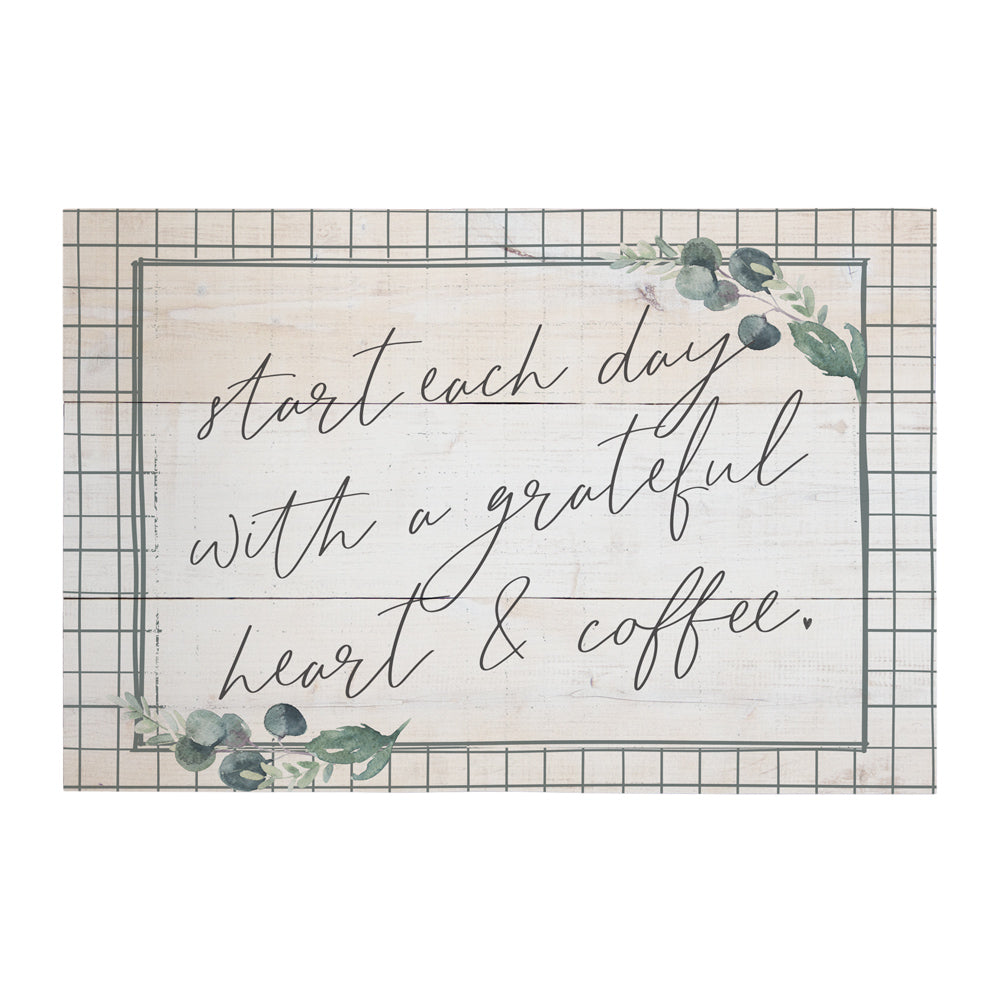 start each day
with a grateful
heart & coffee.